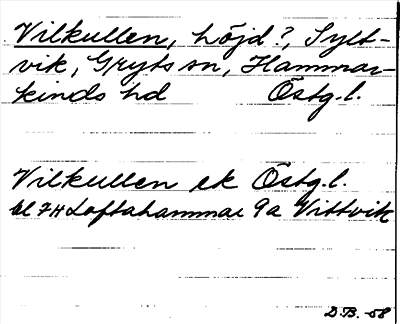 Vilkullen, höjd?, Sylt-
vik, Gryts sn, Hammar-
kinds hd Östg.l.
Vilkullen ek Östg.l.
bl 7H Loftahammar 9a Vittvik
D.B. -58